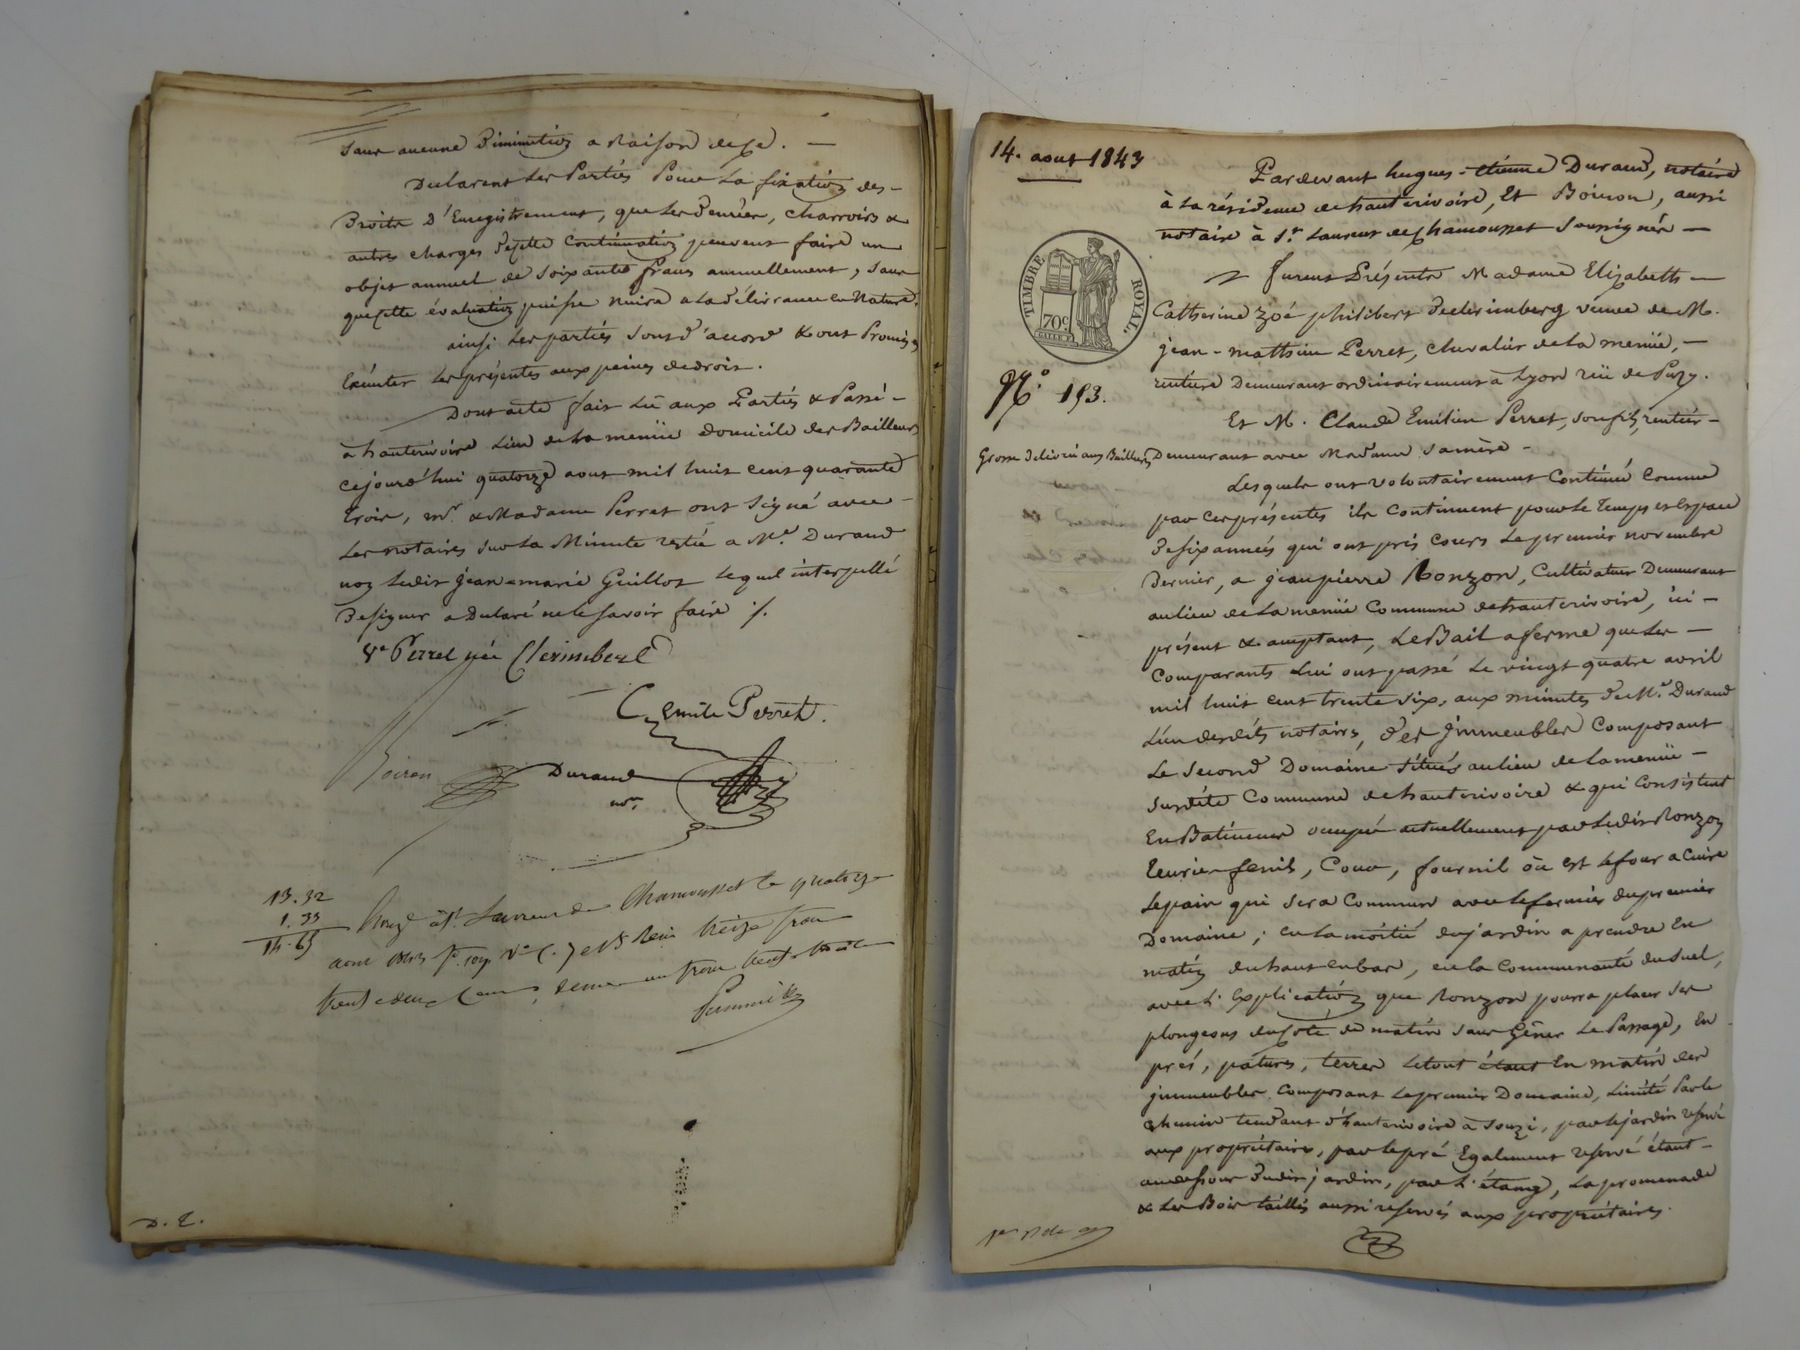 sans aucune Diminution a Raison de ce. —
Declarent les Parties Pour La fixation des -
Droits d'Enregistrement, que les denrées, charrois &
autres charges de cette Continuation peuvent faire un
objet annuel de soixante francs annuellement, sans
que cette évaluation puisse nuire a la délivrance en Nature.
ainsi les parties sont d'accord & ont Promis
Exécuter les présentes aux peines de droit.
Dont acte fait Lu aux Parties & Passé -
à hauterivoire Lieu de la menüe domicile des Bailleurs
cejourd'hui quatorze aout mil huit cent quarante
trois, mr. & Madame Perret ont signé avec -
Les notaires sur La Minute restée a Me. Durand
non ledit jean-marie Guillot lequel interpellé
de signer a déclaré ne le savoir faire ./.
Ve Perret née Clerimbert
C. Emile Perret.
Boiron
Durand
nore.
13.32
1.33
14.65
Enregé à St. Laurent de Chamousset le quatorze
aout 1843 fo. 109 Vo C. 7 et 8 Reçu treize francs
trente deux Cent, decime un franc trente trois
D. E.
14. aout 1843
TIMBRE ROYAL.
70c.
No. 193.
Grosse délivrée aux Bailleurs
Pardevant hugues-étienne Durand, notaire
à la résidence de hauterivoire, Et Boiron, aussi
notaire à St. Laurent de Chamousset soussignés —
Furent Présents Madame Elizabeth —
Catherine zoé philibert declerimberg veuve de M.
jean-matthieu Perret, chevalier de la menüe, —
rentière Demeurant ordinairement à Lyon rüe de Puzy.
Et M. Claude Emilien Perret, son fils, rentier -
Demeurant avec Madame sa mère -
Lesquels ont volontairement Continué Comme
par ces présentes ils Continuent pour le temps et Espace
de six années qui ont pris cours Le premier novembre
dernier, a jean pierre Ronzon, Cultivateur Demeurant
au lieu de La menüe Commune de hauterivoire, ici -
présent & acceptant, Le Bail a ferme que Les —
Comparants Lui ont passé Le vingt quatre avril
mil huit cent trente six, aux minutes de Me. Durand
L'un desdits notaires, des immeubles Composant
Le Second Domaine situés au lieu de La menüe —
susdite Commune de hauterivoire & qui Consistent
En Batiments occupés actuellement par Ledit Ronzon
Ecurie-fenil, Cour, fournil où est le four a Cuire
Le pain qui sera Commun avec le fermier du premier
Domaine; en La moitié du jardin a prendre En
matin du haut en bas, en la Communauté du suel,
avec L'Explication que Ronzon pourra placer ses
plongeons du Coté de matin sans Gêner Le Passage, En
prés, patures, terres Le tout étant En matin des
immeubles Composant Le premier Domaine, Limité Par le
chemin tendant d'hauterivoire à Souzi, par le jardin réservé
aux propriétaires, par le pré Egalement réservé étant -
au dessous dudit jardin, par L'étang, La promenade
& Les Bois taillis aussi réservés aux propriétaires.